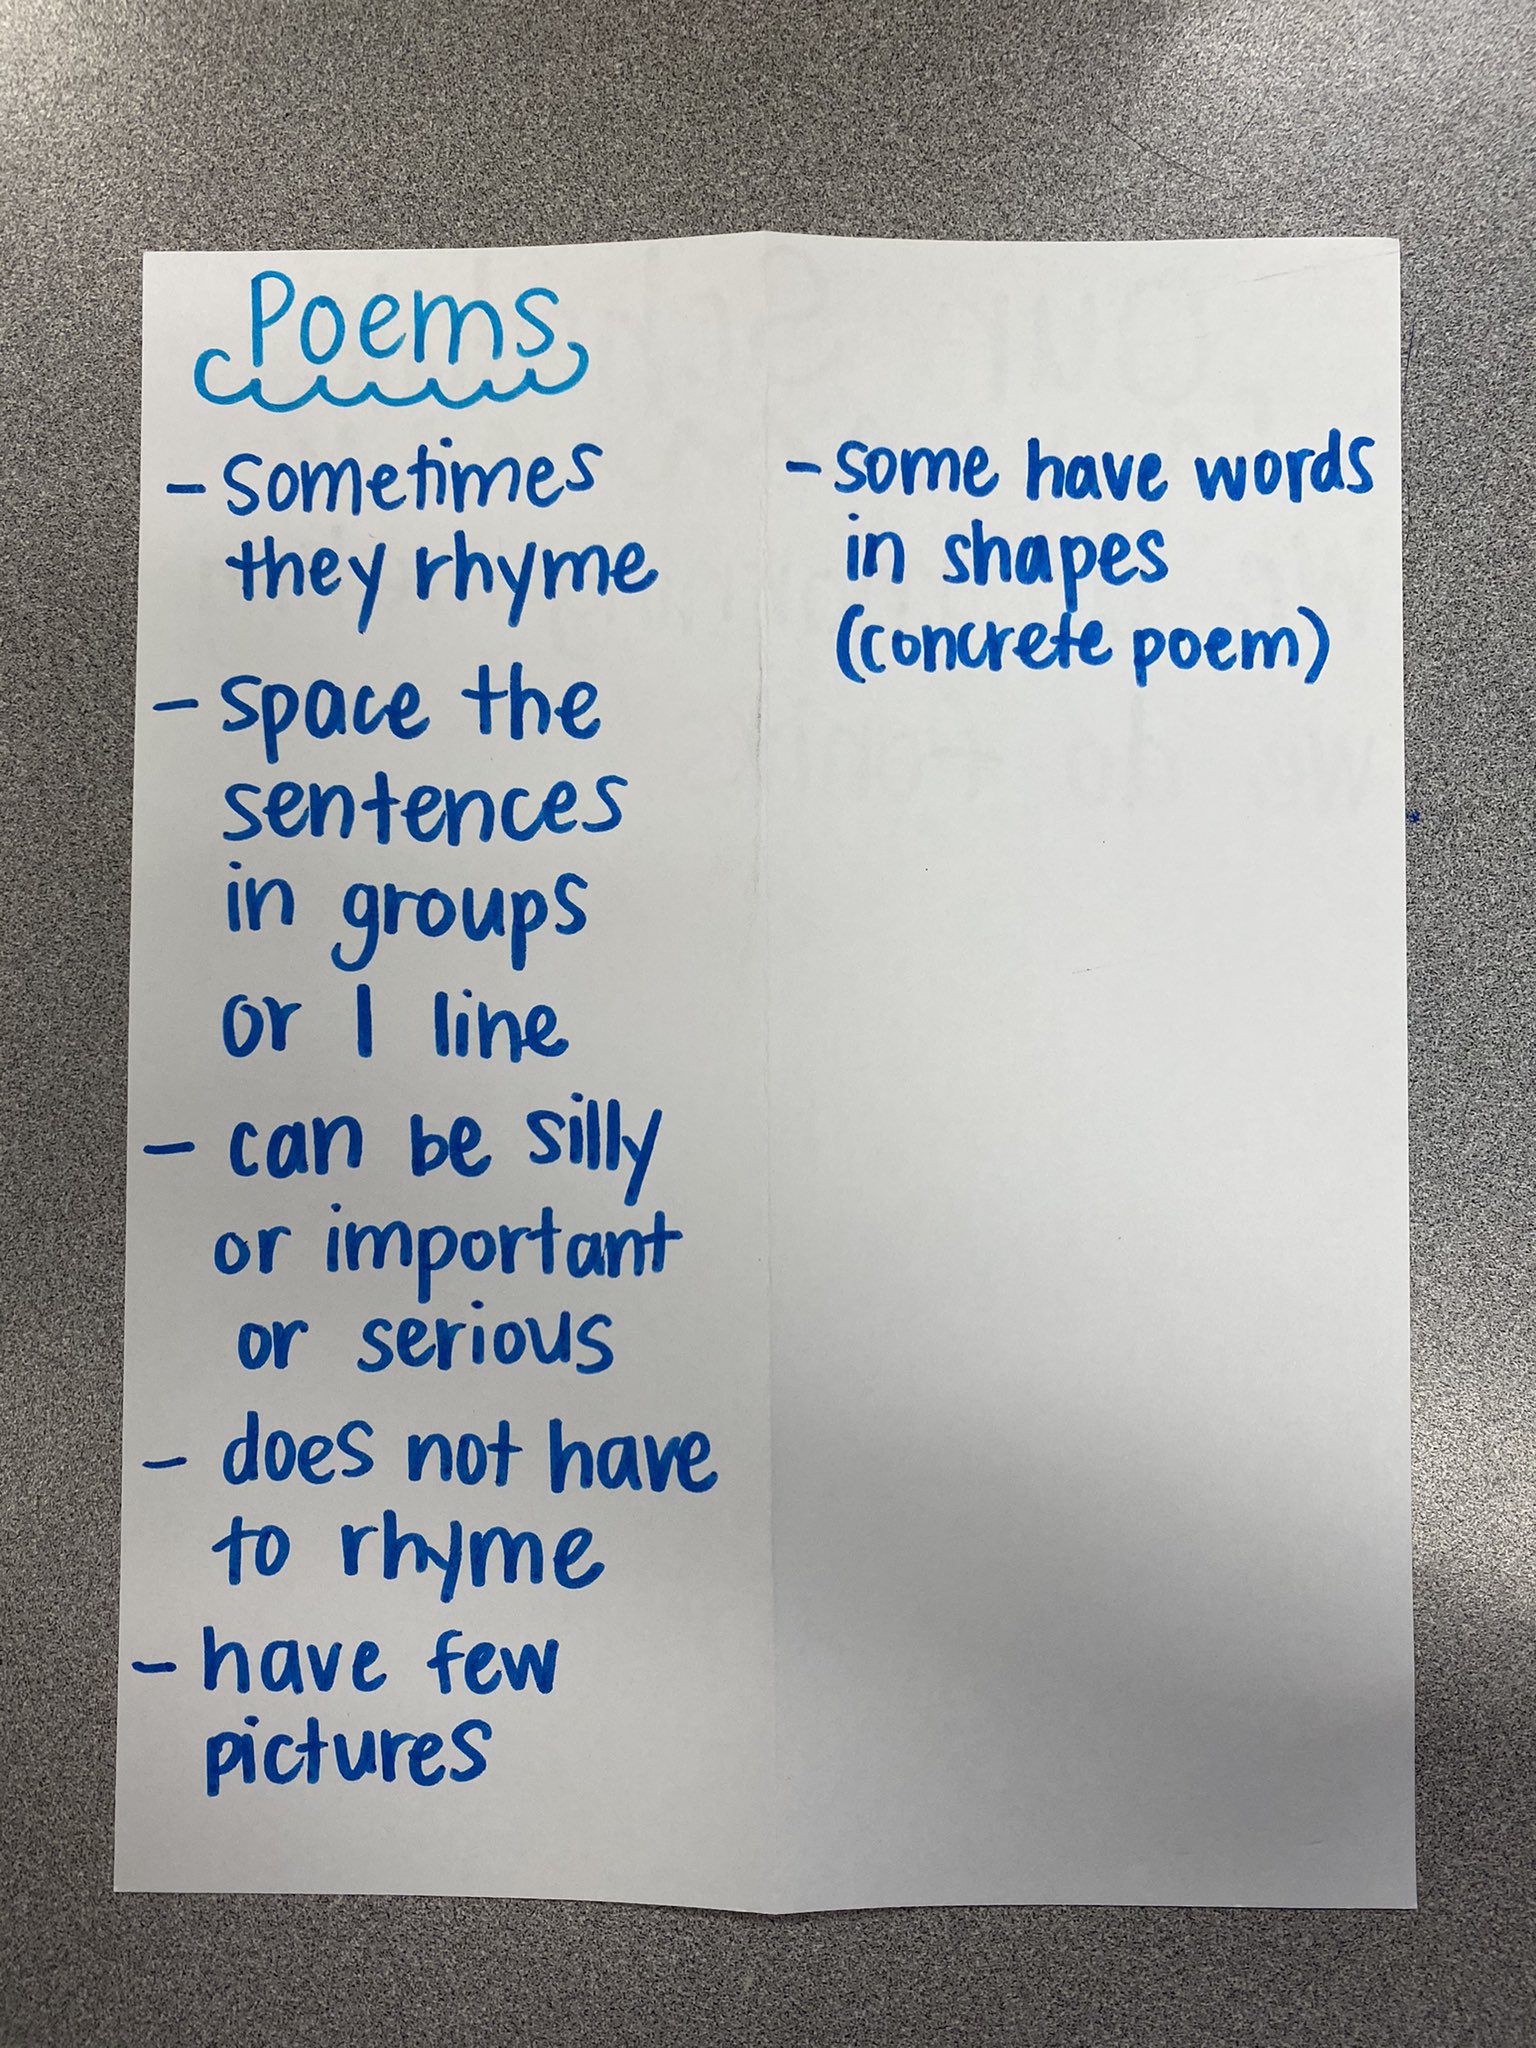 Poems
- sometimes
they rhyme
- space the
sentences
in groups
or 1 line
- can be silly
or important
or serious
- does not have
to rhyme
- have few
pictures
- some have words
in shapes
(concrete poem)